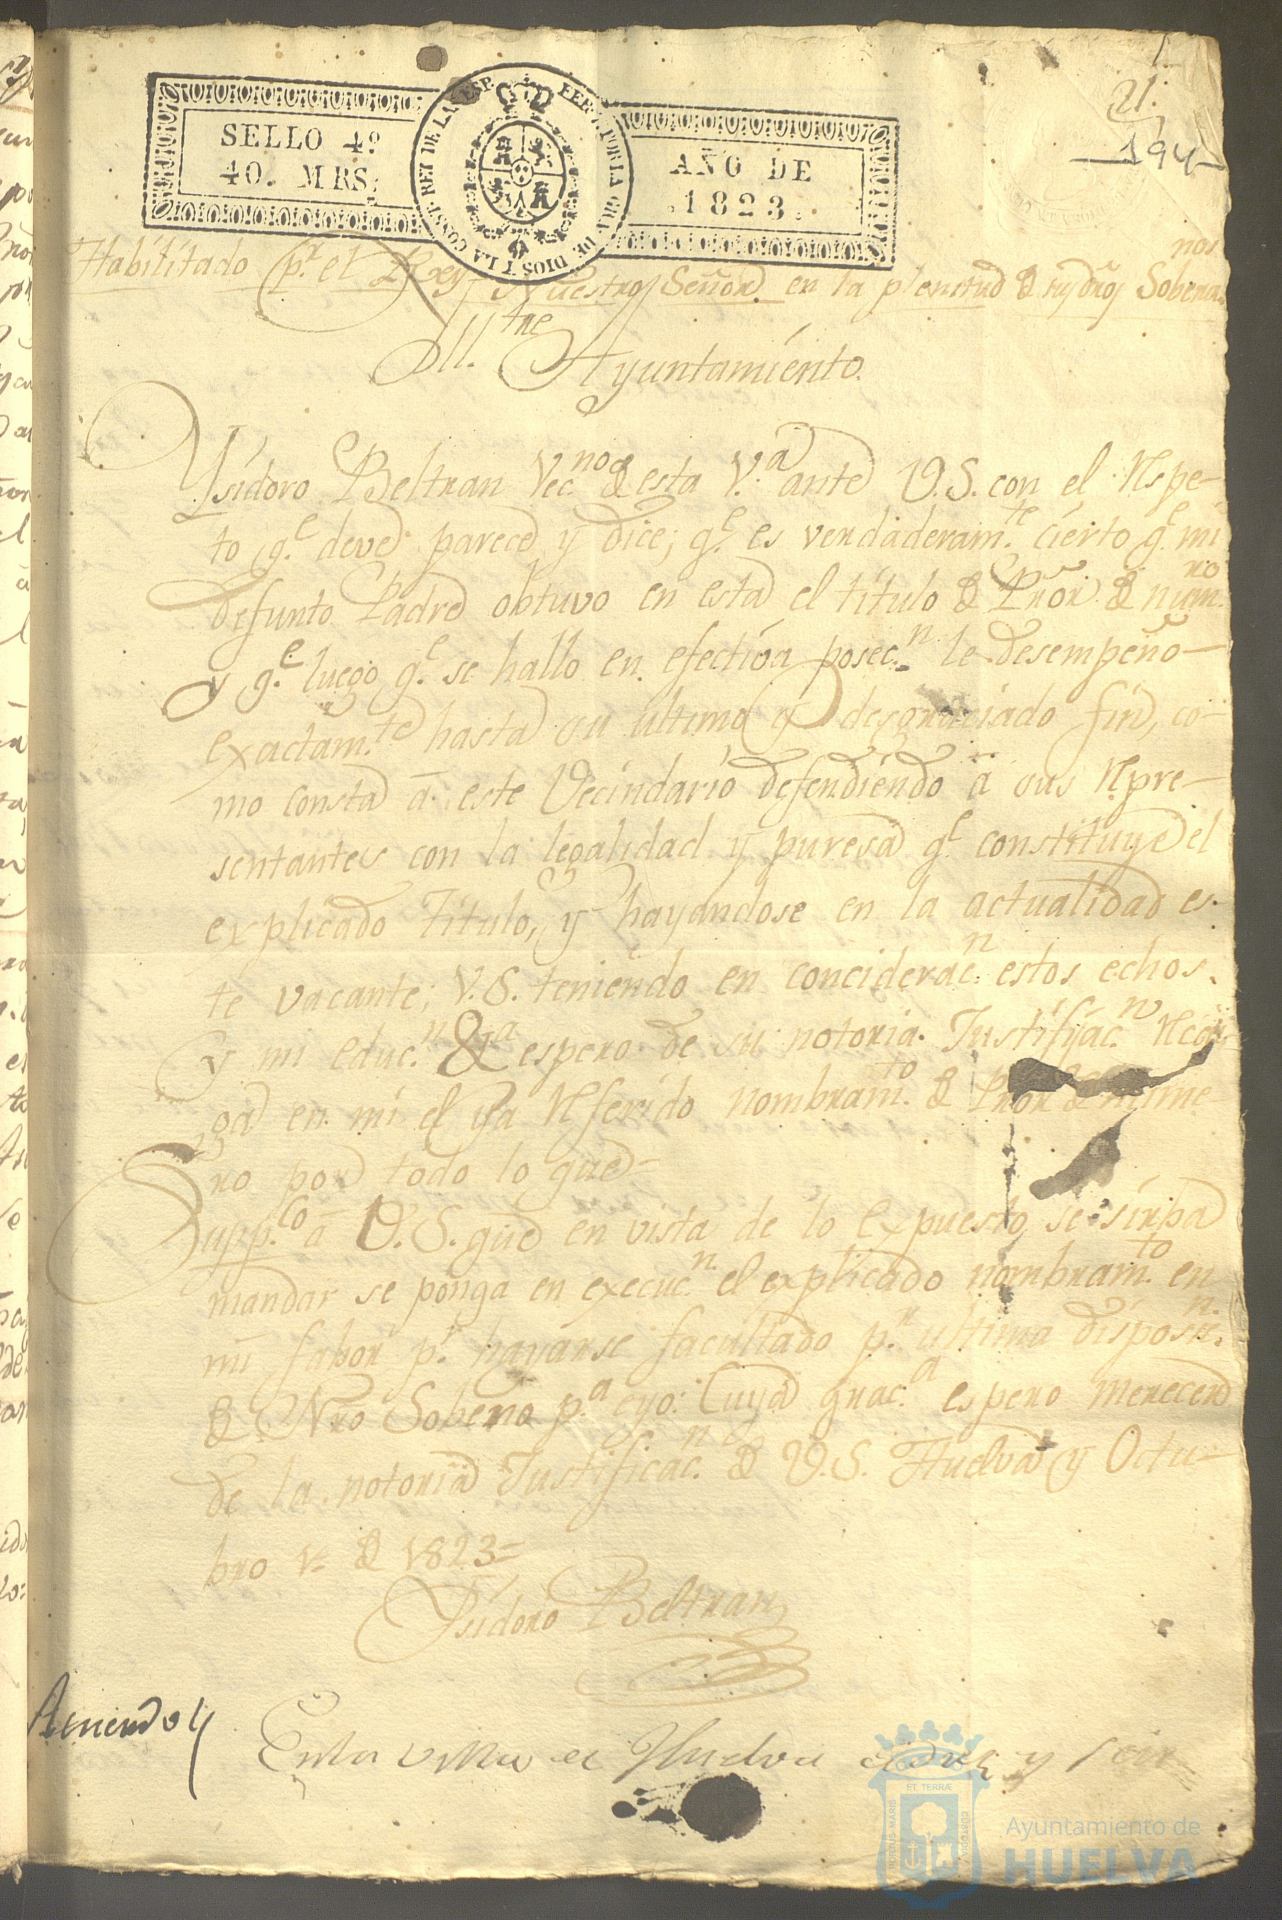 21.
194
SELLO 4º
40. MRS.
FERN. 7 POR LA GRA. DE DIOS Y LA CONST. REY DE LAS ESP.
AÑO DE
1823.
Habilitado pr. el Rey Nuestro Señor en la plenitud de sus dros Soberanos
Ill.tre Ayuntamiento.
Ysidoro Beltran Vec.no de esta V.a ante V.S. con el Respe-
to q.e deve parece y dice; q.e es verdaderam.te cierto q.e mi
defunto Padre obtuvo en esta el titulo de Pror. de num.ro
y q.e luego q.e se hallo en efectiva posec.n le desempeño
exactam.te hasta su ultimo y desgraciado fin, co-
mo consta á este Vecindario defendiendo á sus Repre-
sentantes con la legalidad y puresa q.e constituye el
explicado Titulo, y hayandose en la actualidad es-
te vacante; V.S. teniendo en conciderac.n estos echos
y mi educ.n &a espero de su notoria Justificac.n Recai-
ga en mi el ya Referido nombram.to de Pror de nume-
ro por todo lo que=
Supp.co á V.S. que en vista de lo expuesto se sirba
mandar se ponga en execuc.n el explicado nombram.to en
mi fabor p.r hayarse facultado p.r ultima disposic.n
de Nro Sobeno p.a eyo: Cuya grac.a espero merecer
de la notoria Justificac.n de V.S. Huelva y Octu-
bre 1º de 1823=
Ysidoro Beltran
Acuerdo
En la villa de Huelva en dies y seis
PORTUS MARIS
ET TERRÆ
CUSTODIA
Ayuntamiento de
HUELVA